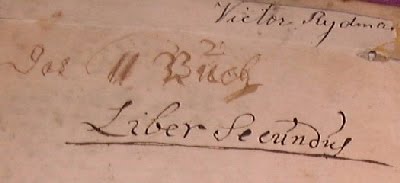 Victor Rydman
Das II Buch
Liber Secundus